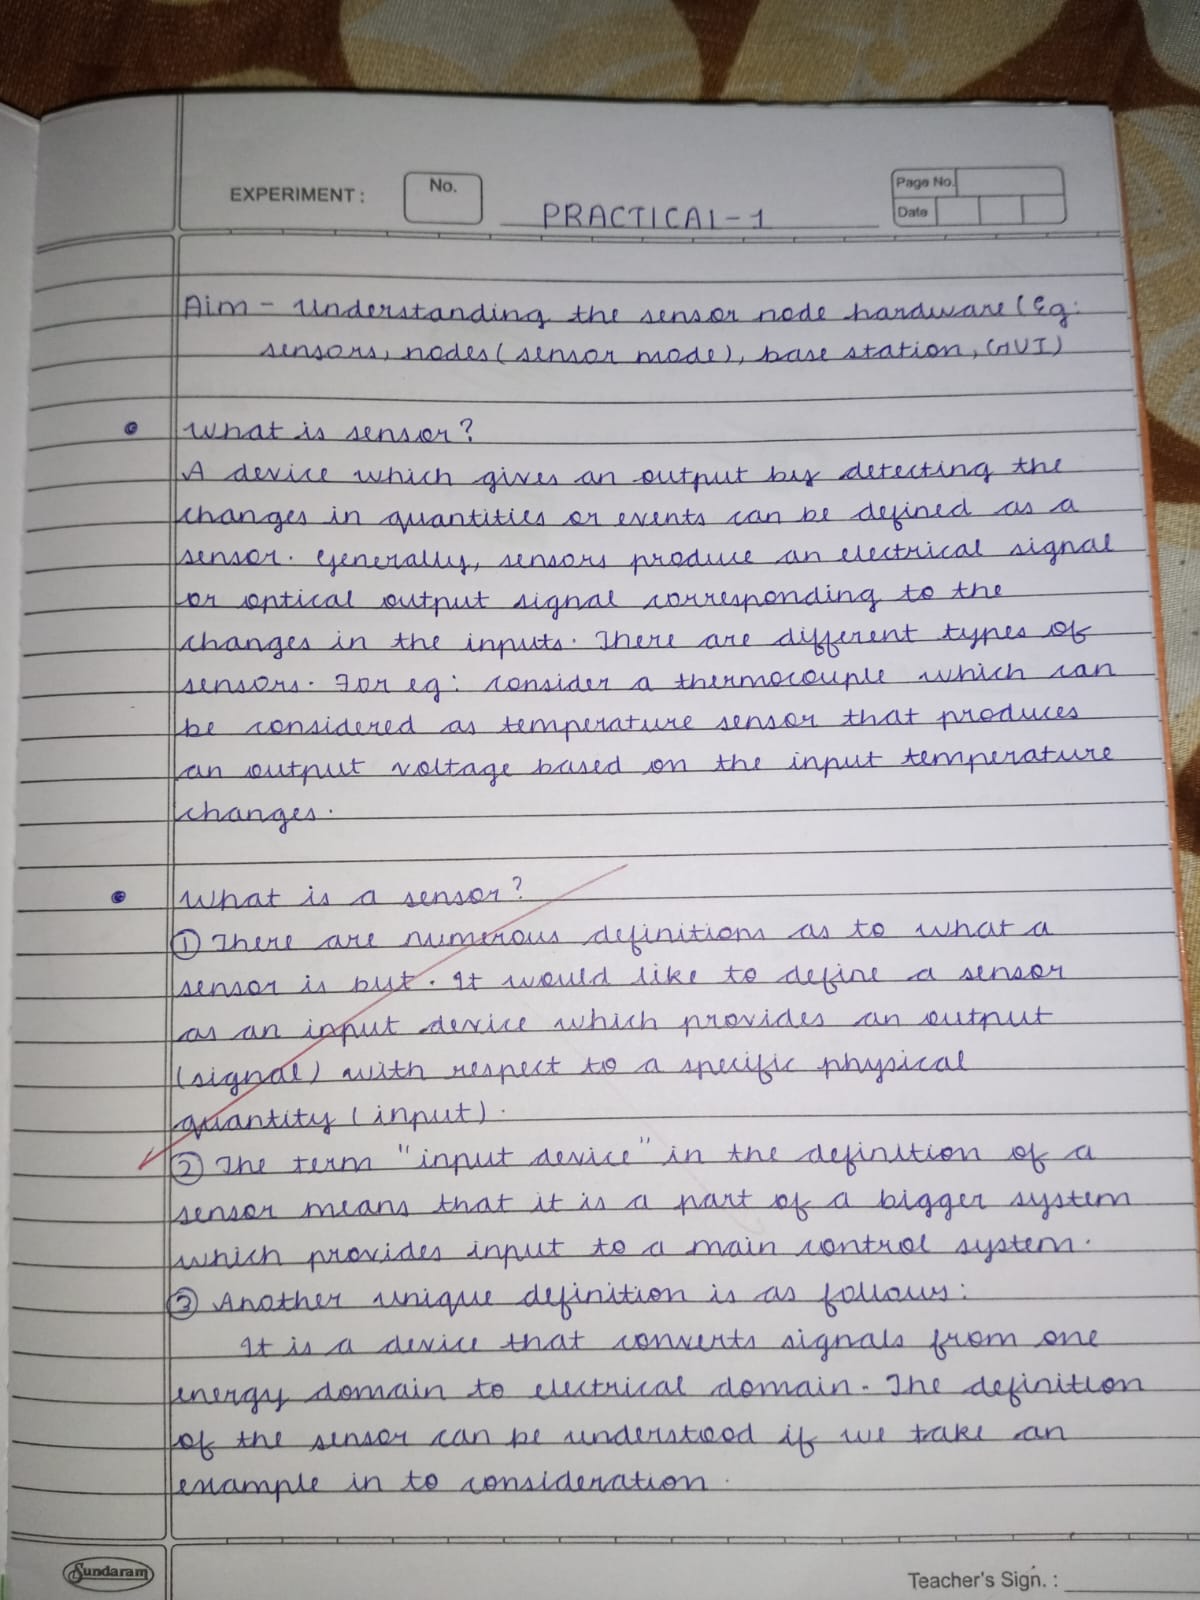 EXPERIMENT :
No.
PRACTICAL-1
Page No.
Date
Aim - Understanding the sensor node hardware (Eg:
sensors, nodes (sensor mode), base station, GUI)
What is sensor?
A device which gives an output by detecting the
changes in quantities or events can be defined as a
sensor. Generally, sensors produce an electrical signal
or optical output signal corresponding to the
changes in the inputs. There are different types of
sensors. For eg: consider a thermocouple which can
be considered as temperature sensor that produces
an output voltage based on the input temperature
changes.
What is a sensor?
① There are numerous definitions as to what a
sensor is but. It would like to define a sensor
as an input device which provides an output
(signal) with respect to a specific physical
quantity (input).
② The term "input device" in the definition of a
sensor means that it is a part of a bigger system
which provides input to a main control system.
③ Another unique definition is as follows:
It is a device that converts signals from one
energy domain to electrical domain. The definition
of the sensor can be understood if we take an
example in to consideration.
Sundaram
Teacher's Sign. :